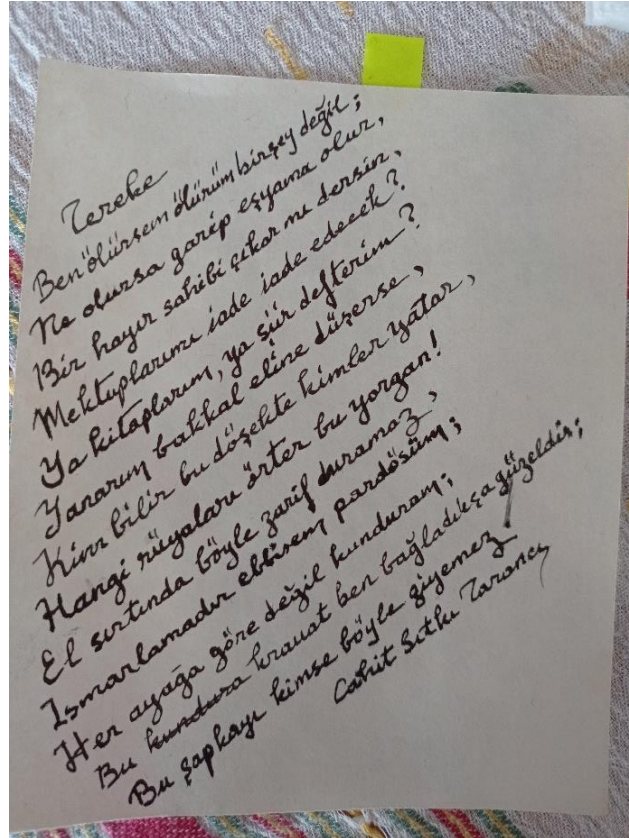 Tereke
Ben ölürsem ölürüm birşey değil;
Ne olursa garip eşyama olur,
Bir hayır sahibi çıkar mı dersin,
Mektuplarımı iade iade edecek?
Ya kitaplarım, ya şiir defterim?
Yanarım bakkal eline düşerse,
Kim bilir bu döşekte kimler yatar,
Hangi rüyaları örter bu yorgan!
El sırtında böyle zarif duramaz,
Ismarlamadır elbisem pardösüm;
Her ayağa göre değil kunduram;
Bu kundura kravat ben bağladıkça güzeldir;
Bu şapkayı kimse böyle giyemez
Cahit Sıtkı Tarancı